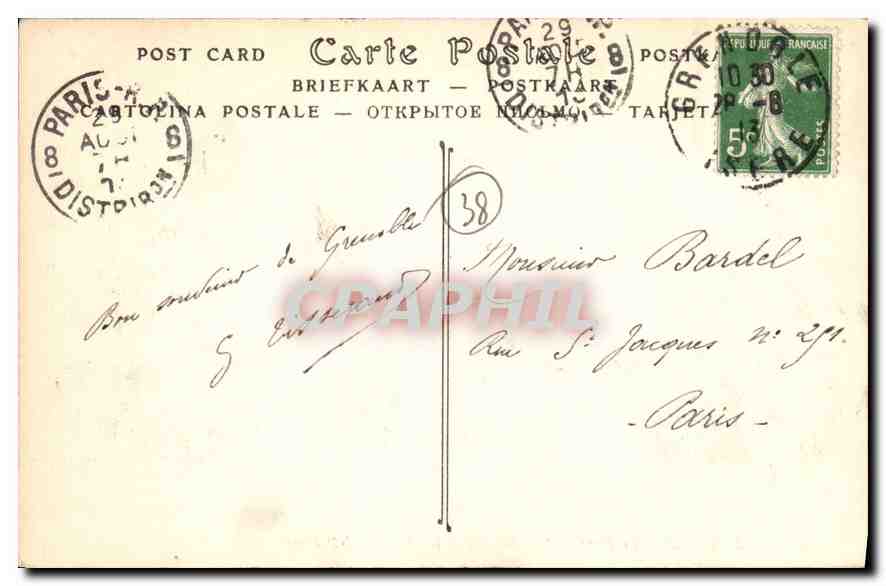 POST CARD Carte Postale POSTKA
BRIEFKAART — POSTKAART
CARTOLINA POSTALE — ОТКРЫТОЕ ПИСЬМО — TARJETA
PARIS
29
AOUT
7H
81 81
DISTRIBUTION
PA
29
7H
81 81
GRENOBLE
10 30
28 -8
13
ISERE
REPUBLIQUE FRANÇAISE
5c
POSTES
38
Bon souvenir de Grenoble
G Tisserand
Monsieur Bardel
Rue St Jacques n° 251.
- Paris -
CPAPHIL